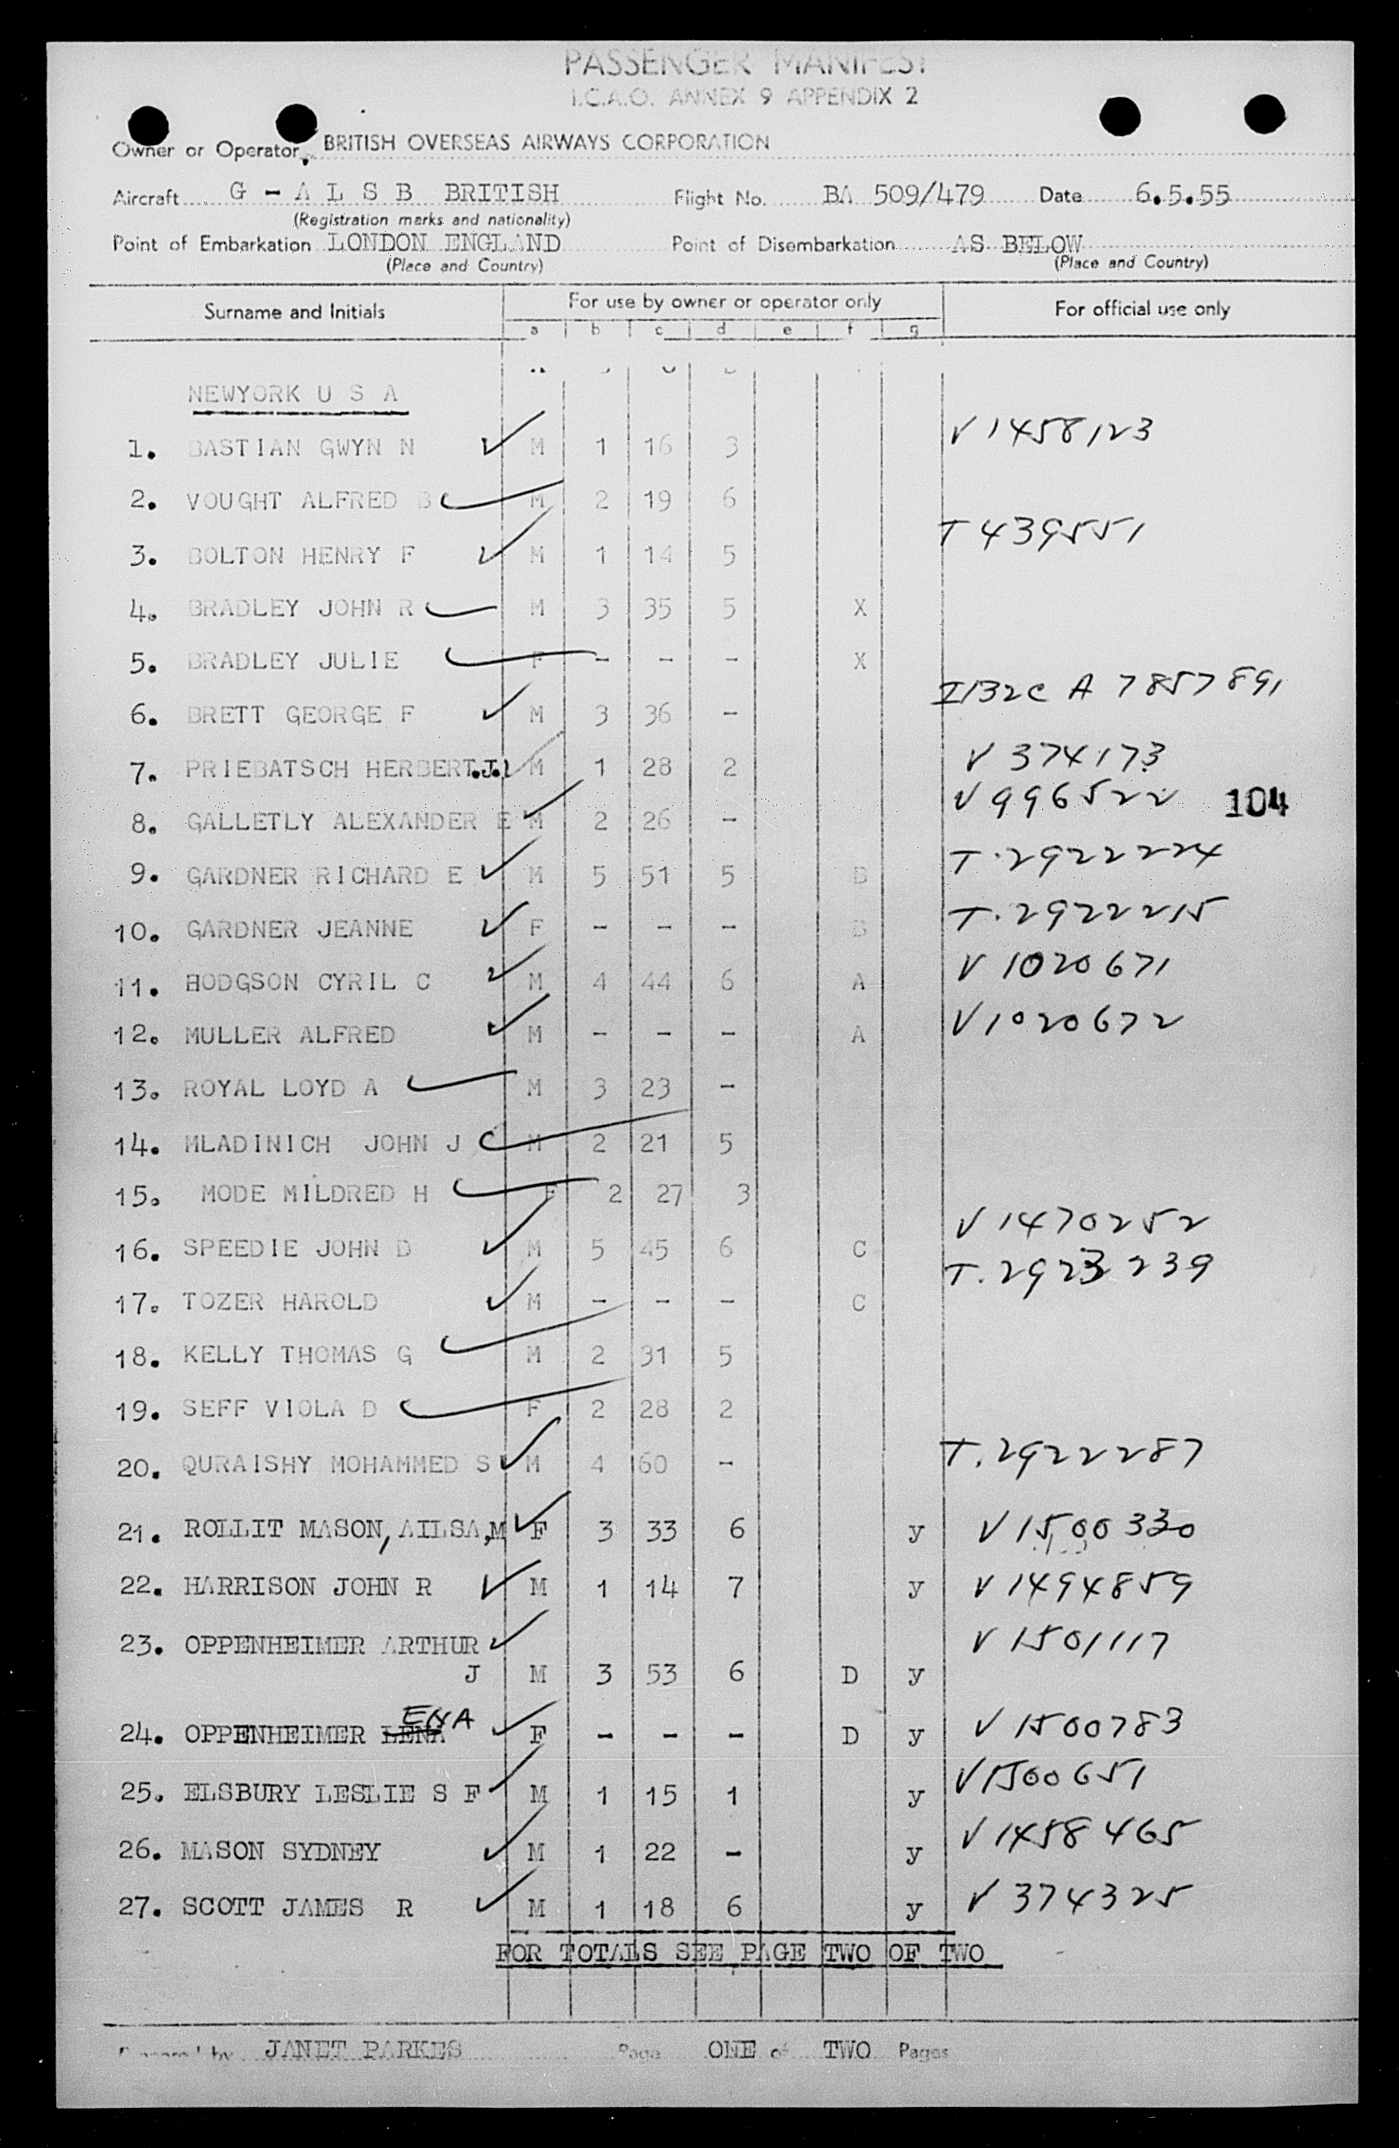 PASSENGER MANIFEST
I.C.A.O. ANNEX 9 APPENDIX 2
Owner or Operator BRITISH OVERSEAS AIRWAYS CORPORATION
Aircraft G - A L S B BRITISH Flight No. BA 509/479 Date 6.5.55
(Registration marks and nationality)
Point of Embarkation LONDON ENGLAND Point of Disembarkation AS BELOW
(Place and Country) (Place and Country)
Surname and Initials For use by owner or operator only For official use only
a b c d e f g
NEWYORK U S A
1. BASTIAN GWYN N M 1 16 3 V 1458123
2. VOUGHT ALFRED B M 2 19 6
3. BOLTON HENRY F M 1 14 5 T 439551
4. BRADLEY JOHN R M 3 35 5 X
5. BRADLEY JULIE F - - - X
6. BRETT GEORGE F M 3 36 - I132c A 7857891
7. PRIEBATSCH HERBERT.J. M 1 28 2 V 374173
8. GALLETLY ALEXANDER E M 2 26 - V 996522 104
9. GARDNER RICHARD E M 5 51 5 B T. 2922224
10. GARDNER JEANNE F - - - B T. 2922215
11. HODGSON CYRIL C M 4 44 6 A V 1020671
12. MULLER ALFRED M - - - A V 1020672
13. ROYAL LOYD A M 3 23 -
14. MLADINICH JOHN J M 2 21 5
15. MODE MILDRED H F 2 27 3
16. SPEEDIE JOHN D M 5 45 6 C V 1470252
17. TOZER HAROLD M - - - C T. 2923239
18. KELLY THOMAS G M 2 31 5
19. SEFF VIOLA D F 2 28 2
20. QURAISHY MOHAMMED S M 4 60 - T. 2922287
21. ROLLIT MASON, AILSA,M F 3 33 6 y V 1500330
22. HARRISON JOHN R M 1 14 7 y V 1494859
23. OPPENHEIMER ARTHUR V 1501117
J M 3 53 6 D y
ENA
24. OPPENHEIMER LENA F - - - D y V 1500783
25. ELSBURY LESLIE S F M 1 15 1 y V 1500651
26. MASON SYDNEY M 1 22 - y V 1458465
27. SCOTT JAMES R M 1 18 6 y V 374325
FOR TOTALS SEE PAGE TWO OF TWO
Prepared by JANET PARKES Page ONE of TWO Pages